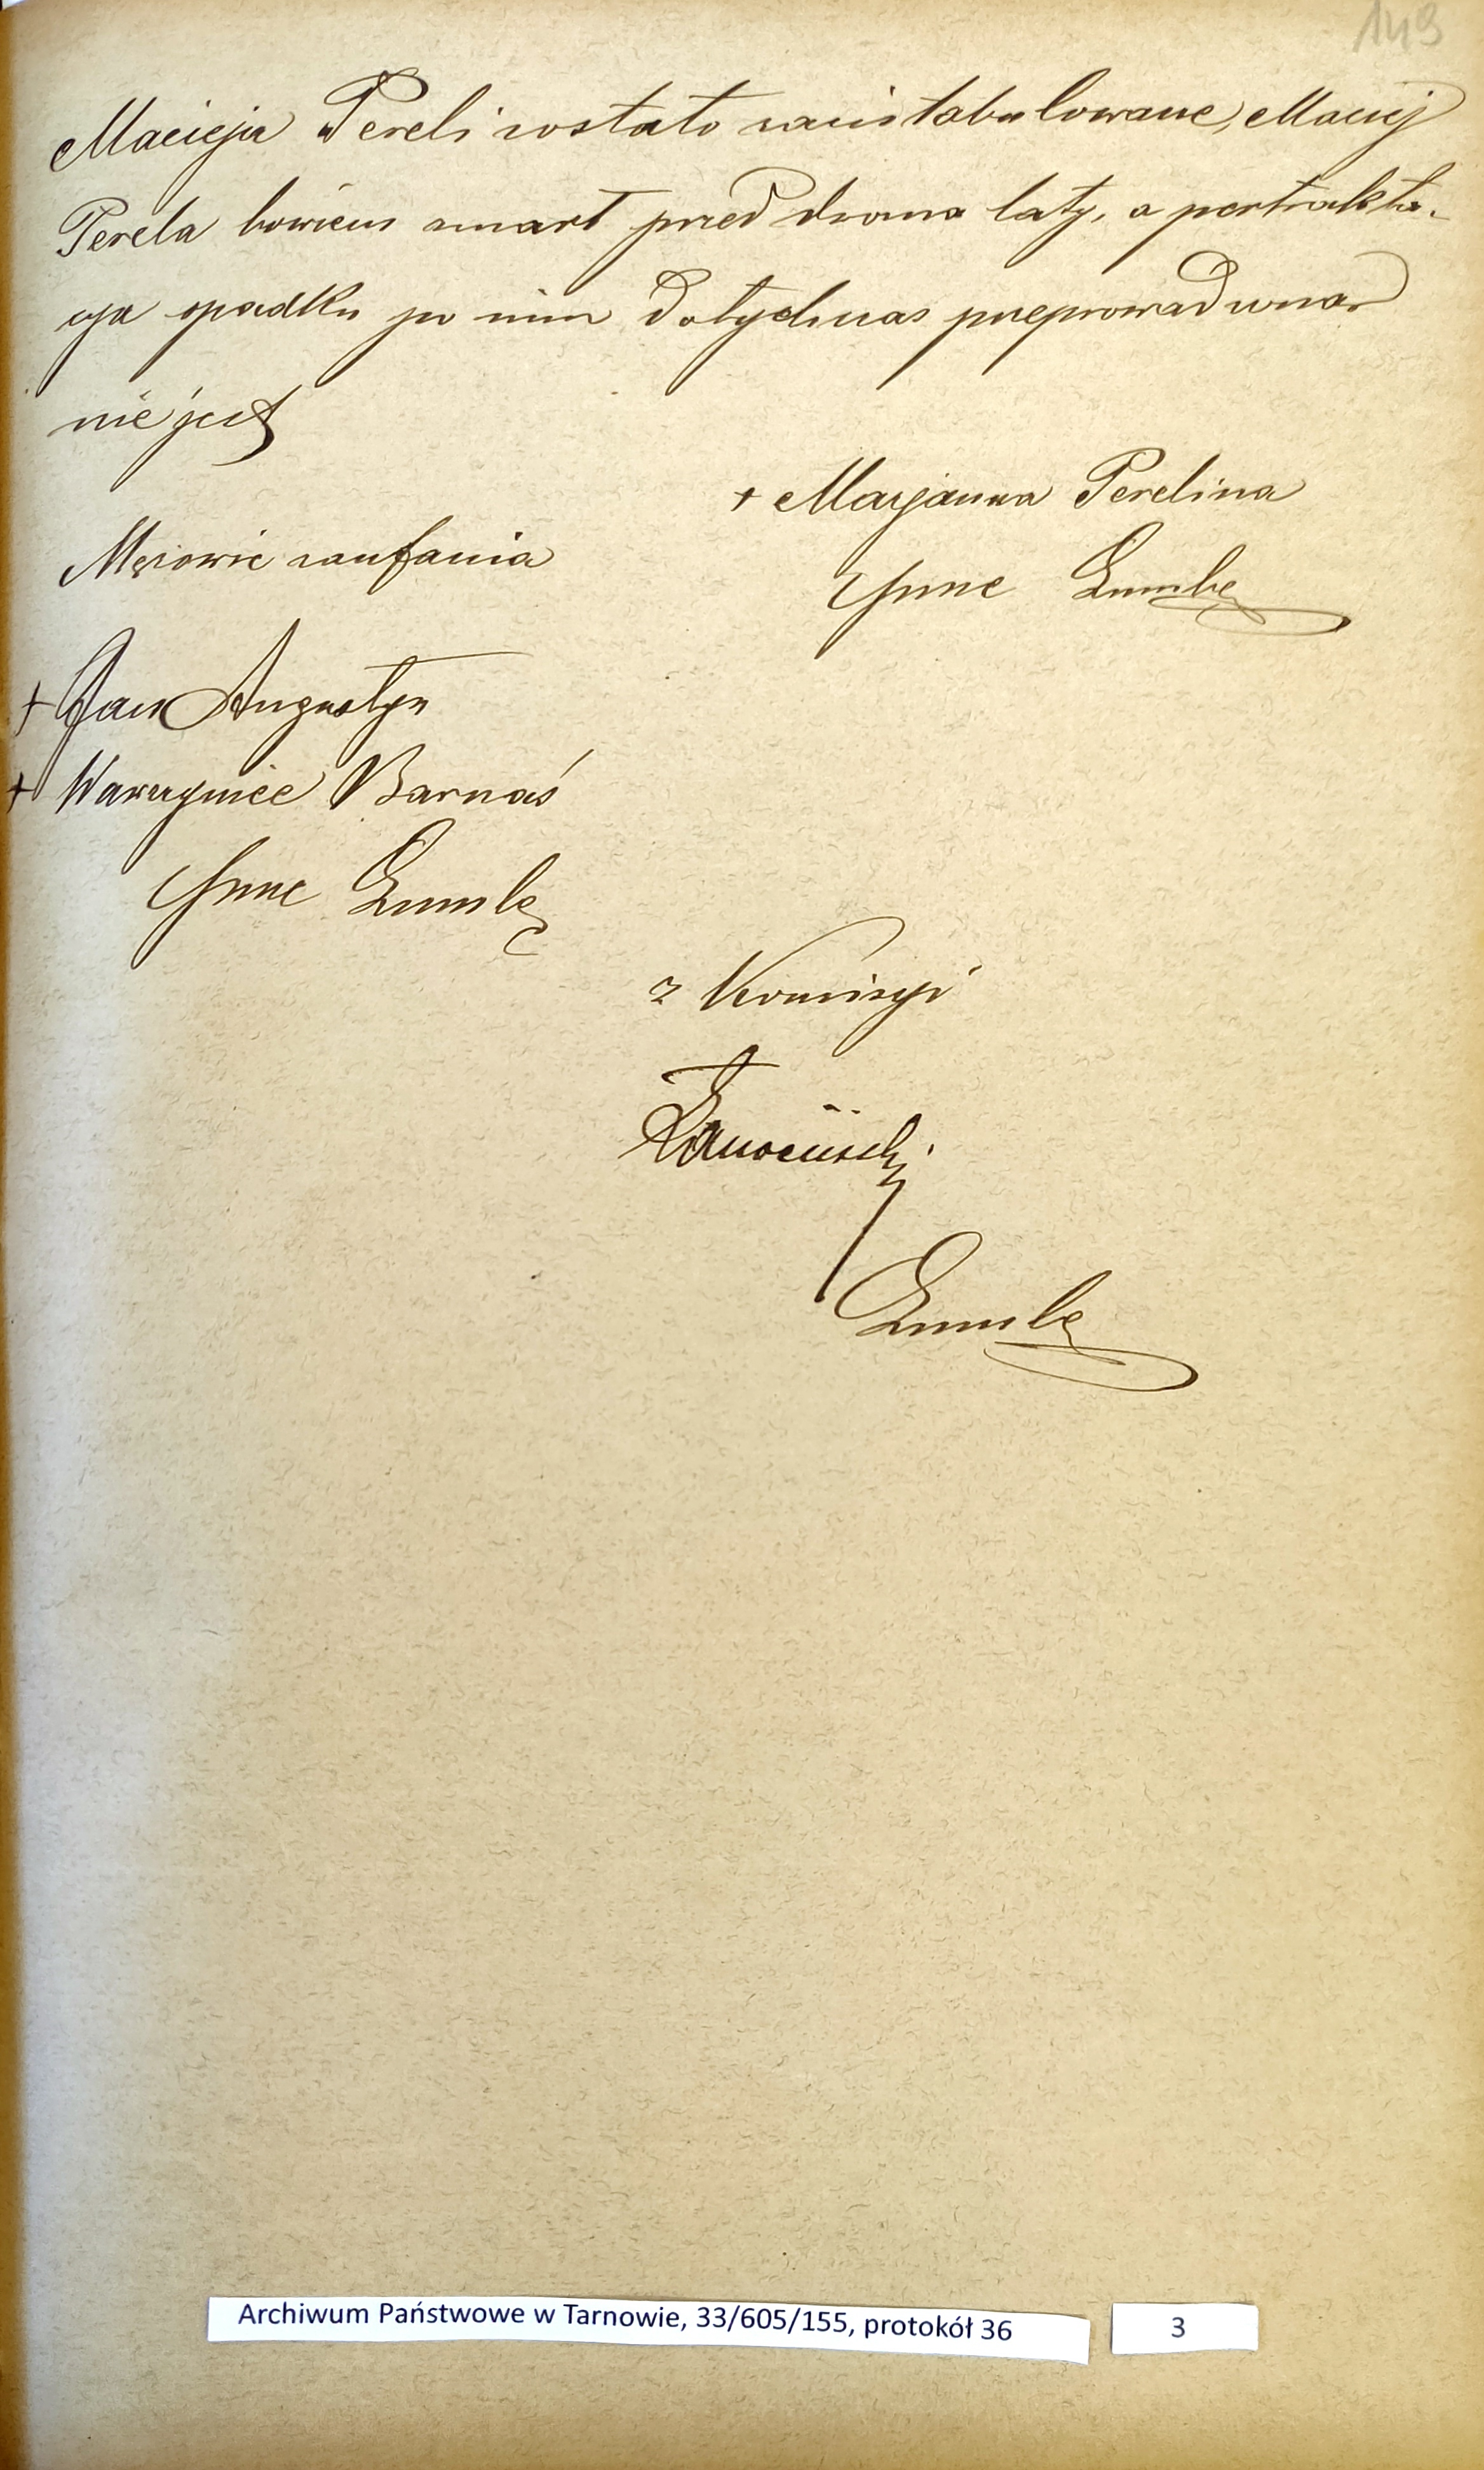 149
Macieja Pereli zostało zaintabulowane, Maciej
Perela bowiem zmarł przed dwoma laty, a pertrakta-
cya spadku po nim dotychczas przeprowadzona
nie jest
+ Maryanna Perelina
Mężowie zaufania
+ Jan Augustyn
+ Wawrzyniec Barnaś
z Komisyi
Archiwum Państwowe w Tarnowie, 33/605/155, protokół 36
3